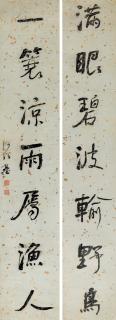 滿眼碧波輸野鳥
一蓑涼雨屬漁人